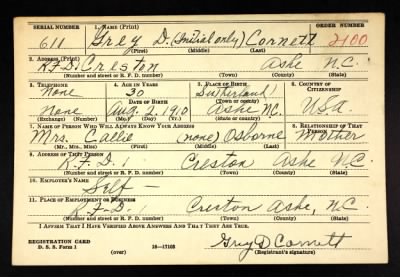 SERIAL NUMBER 1. NAME (Print) ORDER NUMBER
611 Grey D. (Initial only) Cornett 2100
(First) (Middle) (Last)
2. ADDRESS (Print)
R.F.D. Creston Ashe N.C.
(Number and street or R. F. D. number) (Town) (County) (State)
3. TELEPHONE 4. AGE IN YEARS 5. PLACE OF BIRTH 6. COUNTRY OF CITIZENSHIP
None 30 Sutherland
DATE OF BIRTH (Town or county)
None Aug. 9, 1910 Ashe N.C. USA.
(Exchange) (Number) (Mo.) (Day) (Yr.) (State or country)
7. NAME OF PERSON WHO WILL ALWAYS KNOW YOUR ADDRESS 8. RELATIONSHIP OF THAT PERSON
Mrs. Callie (none) Osborne Mother
(Mr., Mrs., Miss) (First) (Middle) (Last)
9. ADDRESS OF THAT PERSON
R.F.D. 1 Creston Ashe N.C.
(Number and street or R. F. D. number) (Town) (County) (State)
10. EMPLOYER'S NAME
Self —
11. PLACE OF EMPLOYMENT OR BUSINESS
R.F.D. 1 Creston Ashe, N.C.
(Number and street or R. F. D. number) (Town) (County) (State)
I AFFIRM THAT I HAVE VERIFIED ABOVE ANSWERS AND THAT THEY ARE TRUE.
REGISTRATION CARD
D. S. S. Form 1 (over) 16—17105
Grey D Cornett
(Registrant's signature)